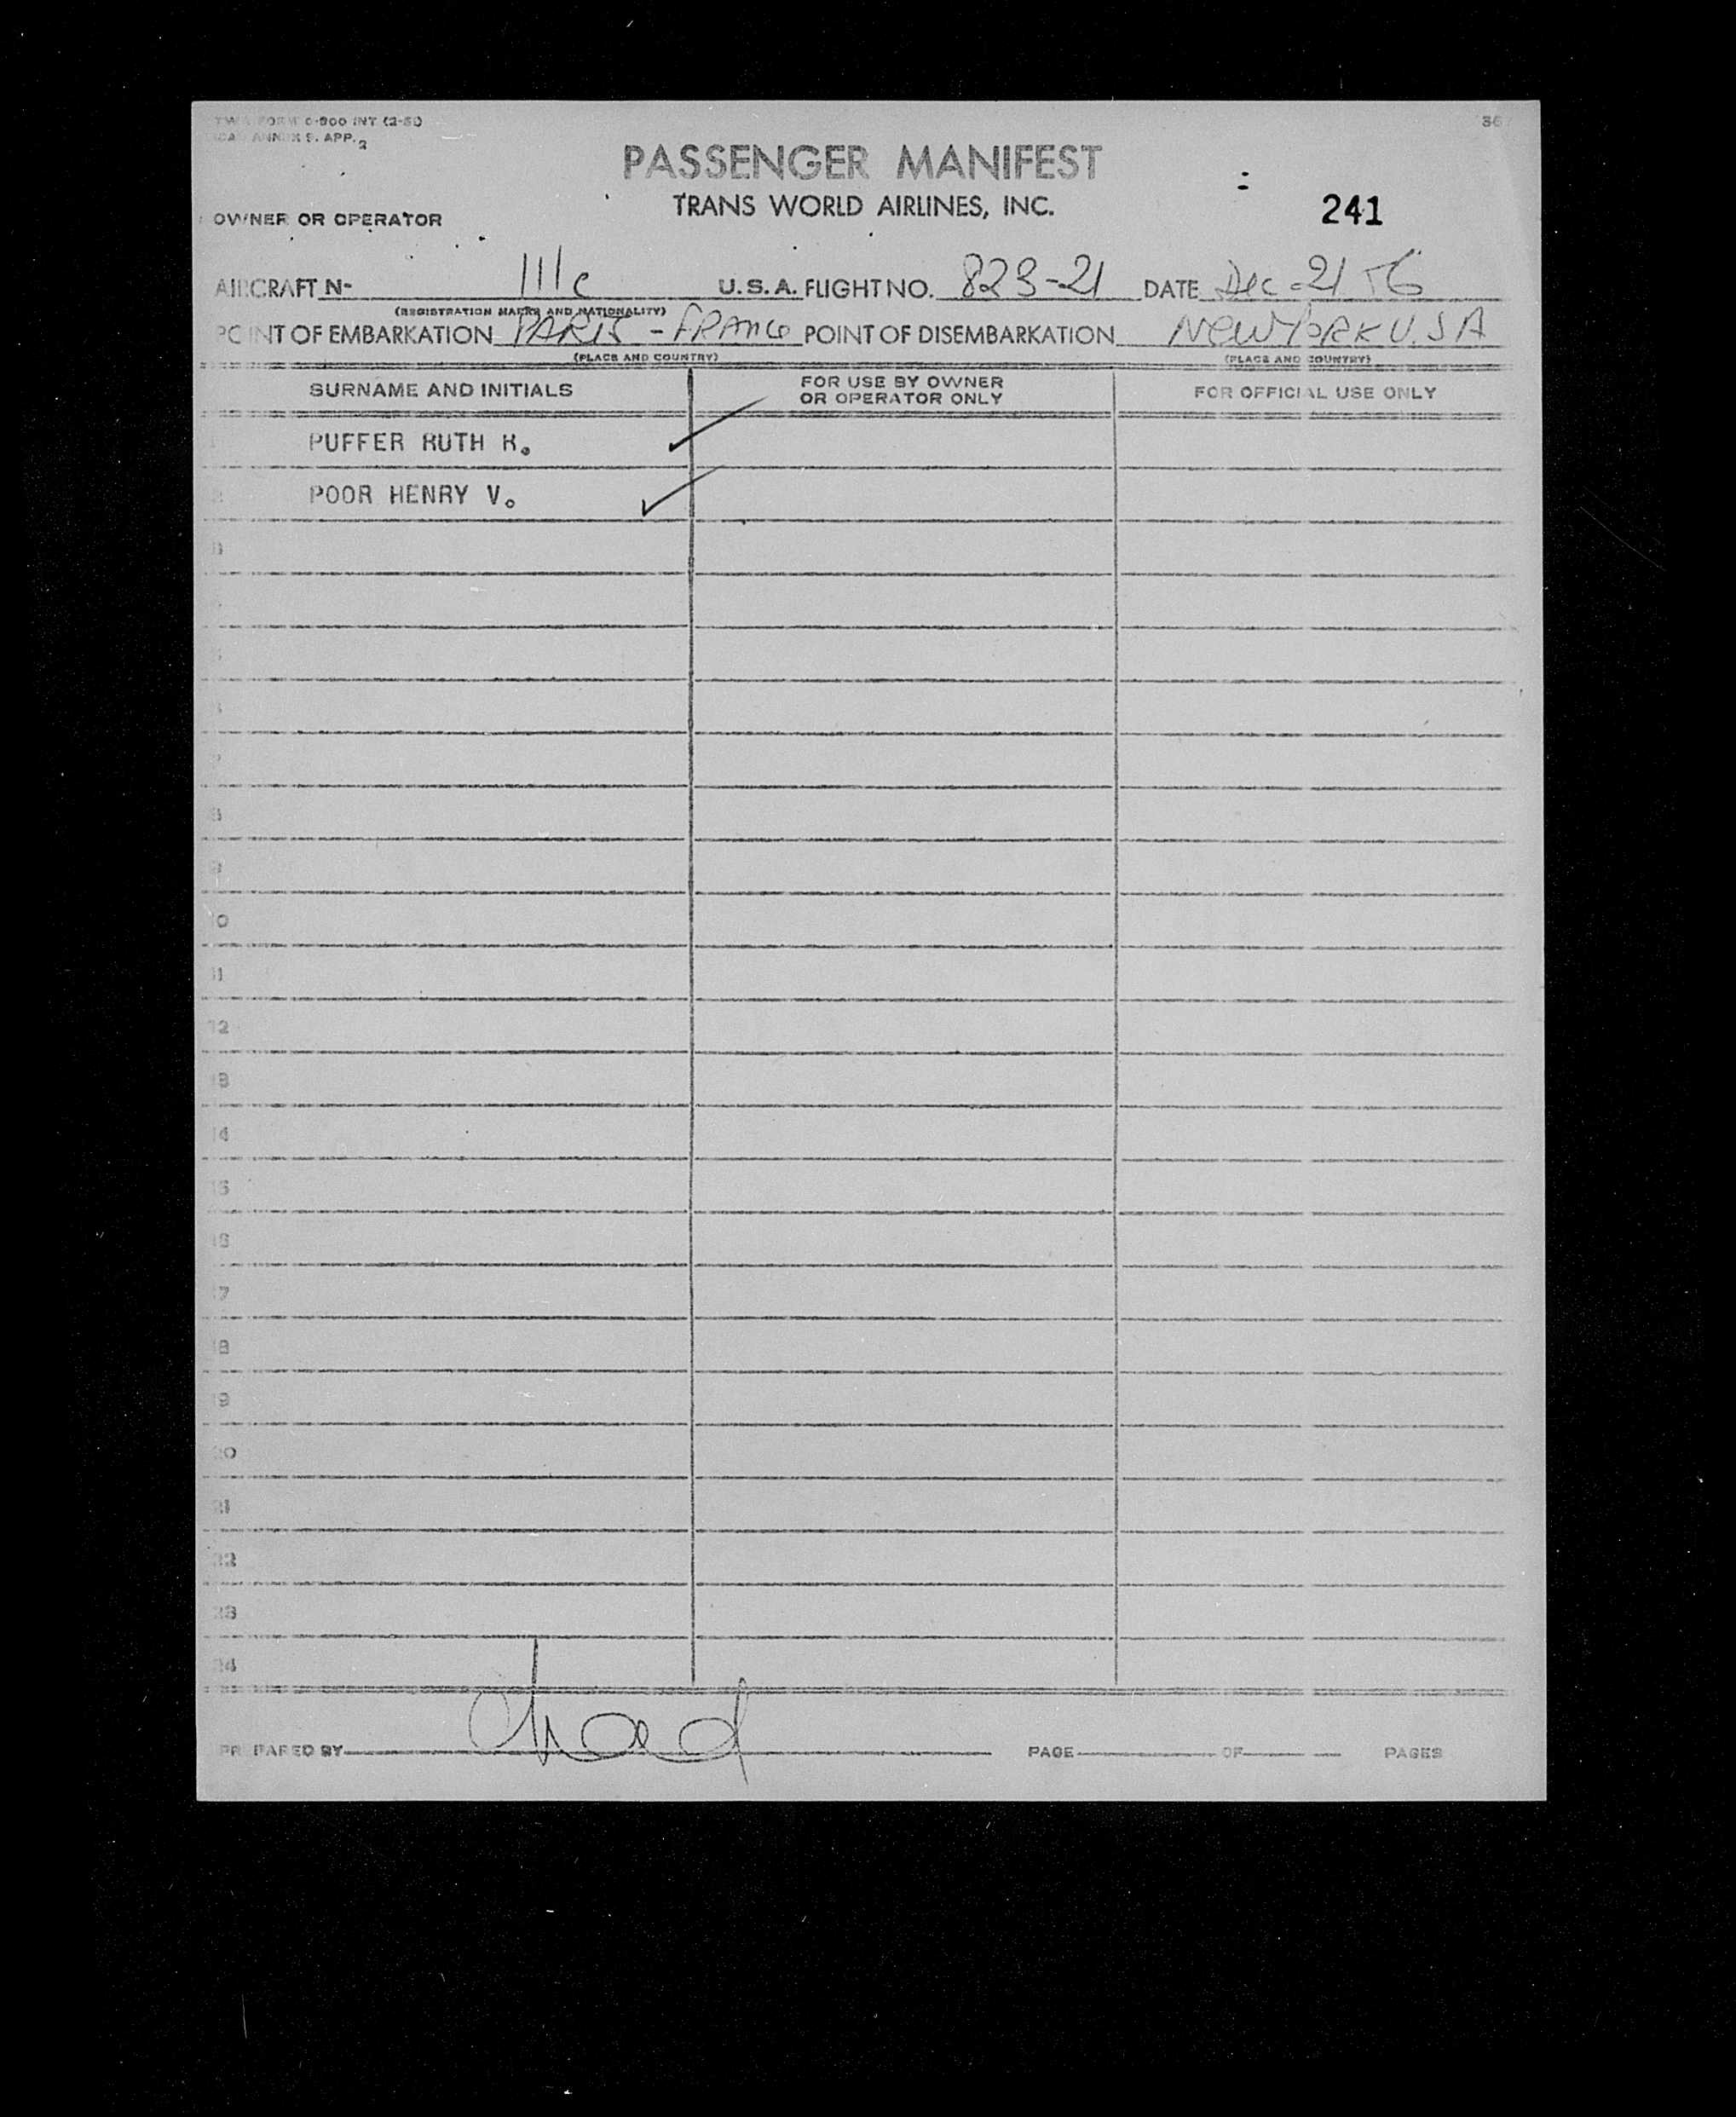 TWA FORM O-900 INT (2-51)
ICAO ANNEX 9. APP. 2
36
PASSENGER MANIFEST
TRANS WORLD AIRLINES, INC.
241
OWNER OR OPERATOR
AIRCRAFT N- 111c U.S.A. FLIGHT NO. 823-21 DATE Dec-21 56
(REGISTRATION MARKS AND NATIONALITY)
POINT OF EMBARKATION PARIS - FRANCE POINT OF DISEMBARKATION NEW YORK U.S A
(PLACE AND COUNTRY) (PLACE AND COUNTRY)
SURNAME AND INITIALS FOR USE BY OWNER OR OPERATOR ONLY FOR OFFICIAL USE ONLY
PUFFER RUTH R.
2 POOR HENRY V.
3
5
7
8
9
10
11
12
13
14
15
16
17
18
19
20
21
22
23
24
PREPARED BY PAGE OF PAGES